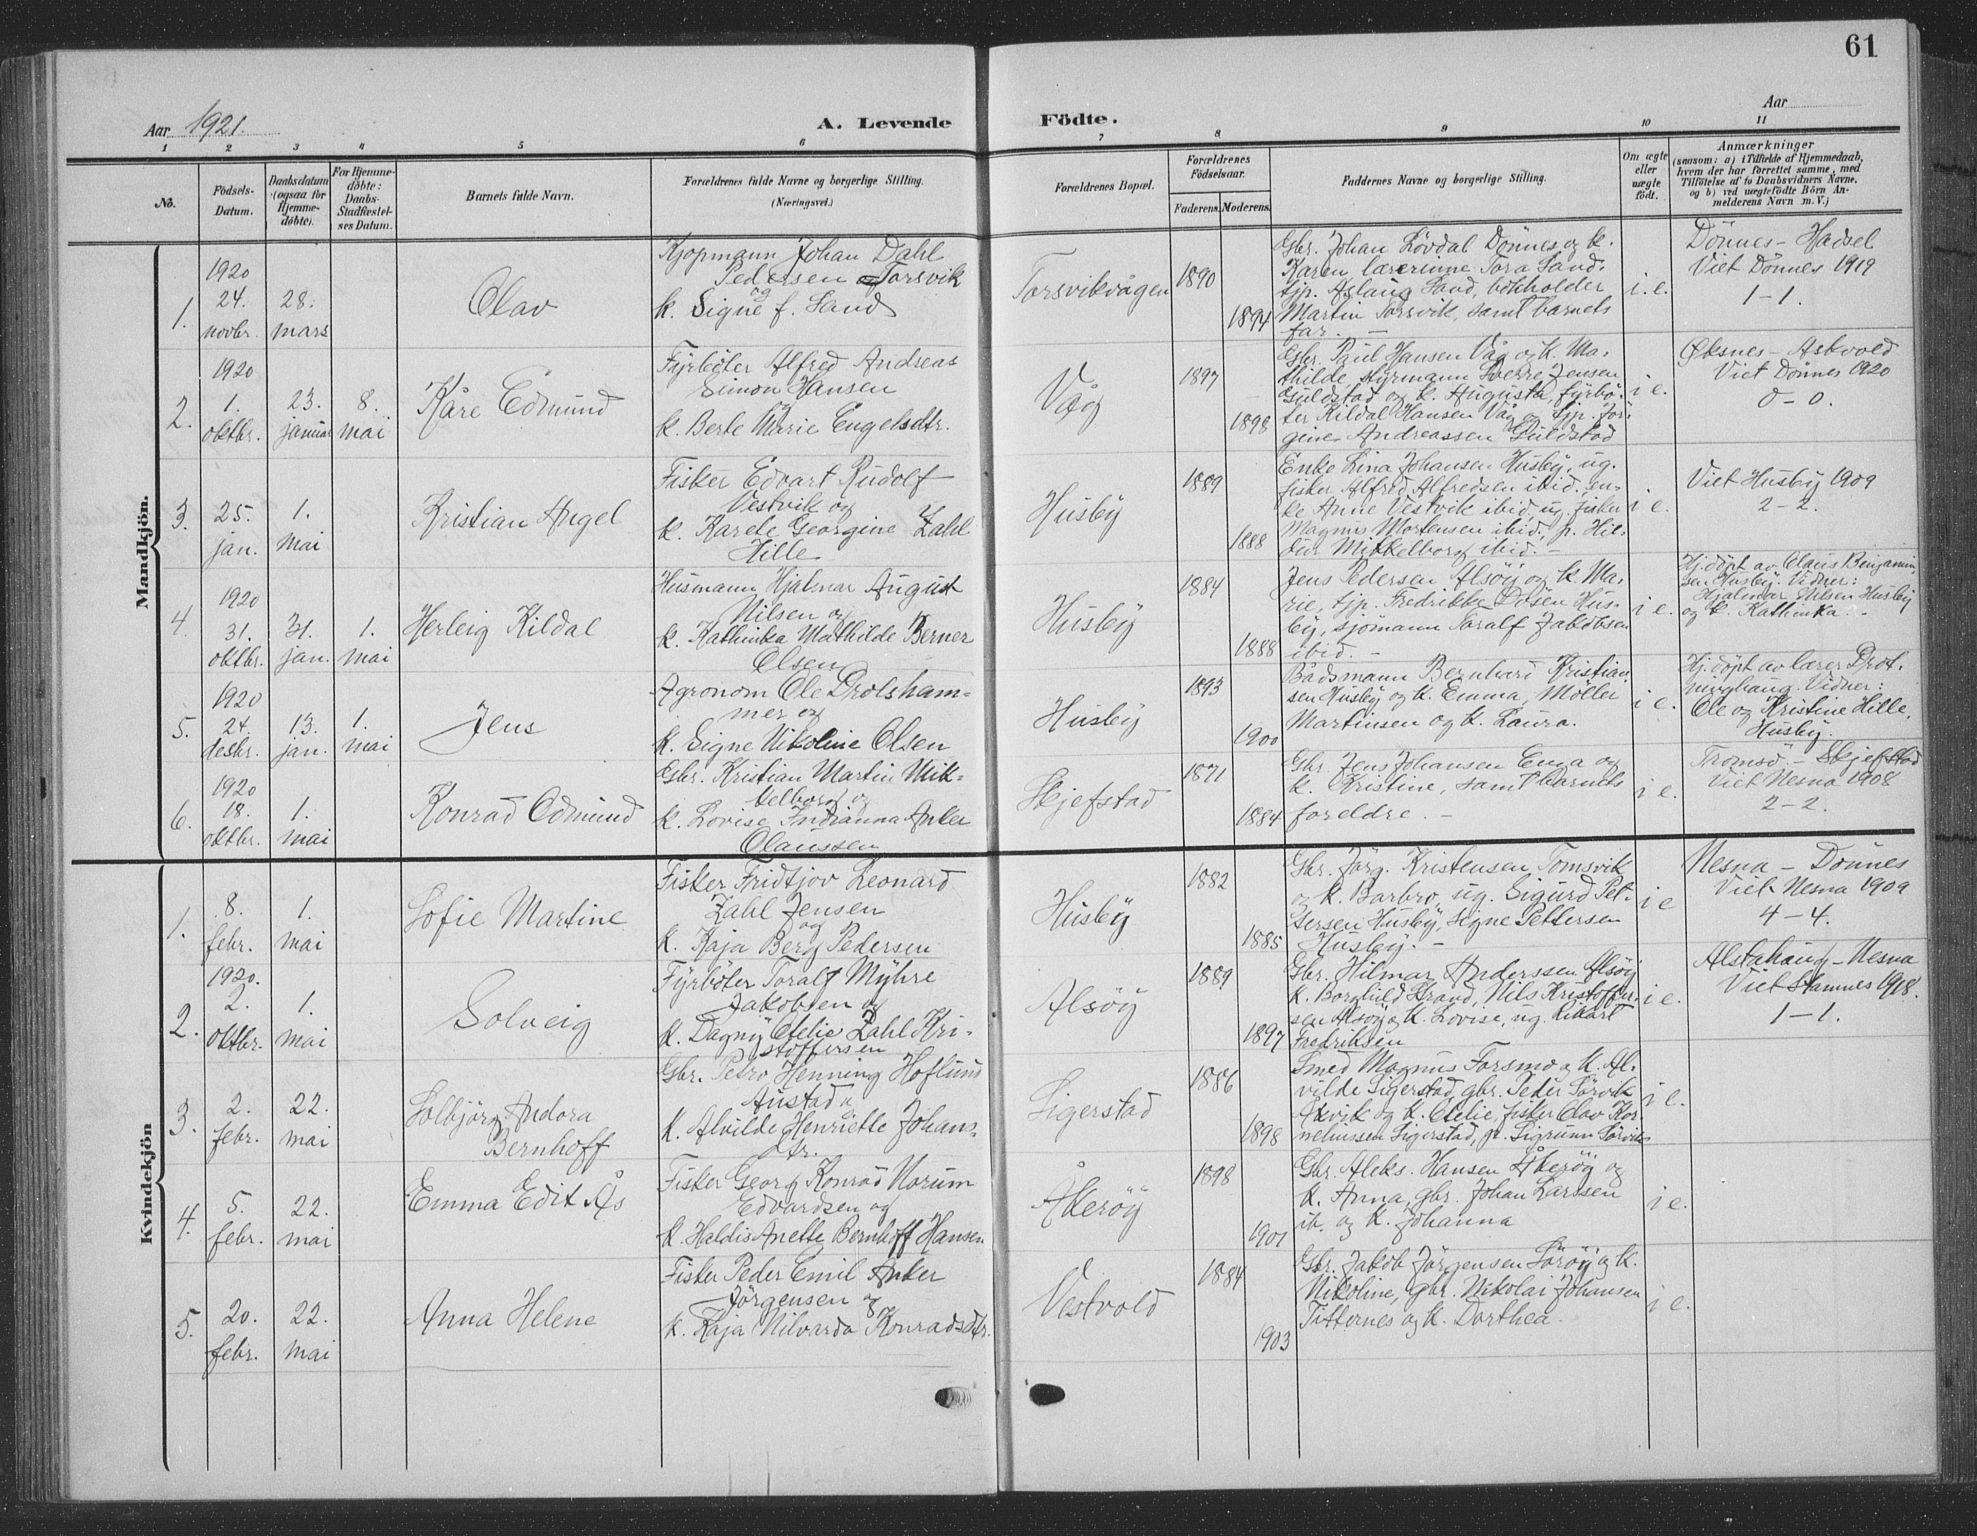 61
Aar 1921.
A. Levende
Födte.
Aar
1 2 3 4 5 6 7 8 9 10 11
No.
Födsels-
Datum.
Daabsdatum
(ogsaa for
Hjemme-
döbte).
For Hjemme-
döbte:
Daabs-
Stadfæstel-
ses Datum.
Barnets fulde Navn.
Forældrenes fulde Navne og borgerlige Stilling.
(Næringsvei.)
Forældrenes Bopæl.
Forældrenes
Födselsaar.
Faderens. Moderens.
Faddernes Navne og borgerlige Stilling.
Om ægte
eller
uægte
födt.
Anmærkninger
(saasom: a) i Tilfælde af Hjemmedaab,
hvem der har forrettet samme, med
Tilföielse af to Daabsvidners Navne,
og b) ved uægtefödte Börn An-
melderens Navn m. V.)
Mandkjön.
1.
1920
24.
novbr.
28.
mars
Olav
Kjøpmann Johan Dahl
Pedersen Torsvik
og
k. Signe f. Sand
Torsvikvågen
1890
1894
Gbr. Johan Lövdal Dönnes og k.
Karen, lærerinne Tora Sand,
tjp. Aslaug Sand, bokholder
Martin Torsvik, samt barnets
far. —
i. e.
Dönnes – Hadsel
Viet Dönnes 1919
1 – 1.
2.
1920
1.
oktbr.
23.
januar
8.
mai
Kåre Edmund
Fyrbøter Alfred Andreas
Simon Hansen
og
k. Berle Marie Engelsdtr.
Våg
1897
1898
Gbr. Paul Hansen Våg og k. Ma-
thilde, styrmann Sverre Jensen
Guldstad og k. Augusta, fyrbö-
ter Kildal Hansen Våg og tjp. Jör-
gine Andreassen Guldstad
i e.
Øksnes – Askvold
Viet Dönnes 1920
0 – 0.
3.
25.
jan.
1.
mai
Kristian Angel
Fisker Edvart Rudolf
Vestvik og
k. Karele Georgine Zahl
Hille
Husby
1889
1888
Enke Lina Johansen Husby, ug.
fisker Alfred Alfredsen ibid., en-
ke Anne Vestvik ibid., ug. fisker
Magnus Mortensen ibid., p. Hil-
dur Mikkelborg ibid. —
i e.
Viet Husby 1909
2 – 2.
4.
1920
31.
oktbr.
31.
jan.
1.
mai
Herleig Kildal
Husmann Hjalmar August
Nilsen og
k. Kathinka Mathilde Berner
Olsen
Husby
1884
1888
Jens Pedersen Alsöy og k. Ma-
rie, tjp. Fredrikke Dösen Hus-
by, sjömann Toralf Jakobsen
ibid. —
i e.
Hj. döpt av Claus Benjamin-
sen Husby. Vidner:
Hjalmar Nilsen Husby
og k. Kathinka. —
5.
1920
24.
desbr.
13.
jan.
1.
mai
Jens
Agronom Ole Drolsham-
mer og
k. Signe Nikoline Olsen
Husby
1893
1900
Bådsmann Bernhard Kristian-
sen Husby og k. Emma, Möller
Martinsen og k. Laura.
i e.
Hj. döpt av lærer Drot-
ninghaug. Vidner:
Ole og Kristine Hille,
Husby.
6.
1920
18.
oktbr.
1.
mai
Konrad Odmund
Gbr. Kristian Martin Mik-
kelborg og
k. Lovise Indianna Anker
Olaussen
Skjefstad
1871
1884
Gbr. Jens Johansen Enga og
k. Kristine, samt barnets
foreldre. —
i e.
Tromsö – Skjefstad
Viet Nesna 1908
2 – 2.
Kvindekjön
1.
8.
febr.
1.
mai
Sofie Martine
Fisker Fridtjov Leonard
Zahl Jensen
og
k. Kaja Berg Pedersen
Husby
1882
1885
Gbr. Jörg. Kristensen Tomsvik
og k. Barbro, ug. Sigurd Pet-
tersen Husby, Signe Pettersen
Husby. —
i e
Nesna – Dönnes
Viet Nesna 1909
4 – 4.
2.
1920.
2.
oktbr.
1.
mai
Solveig
Fyrböter Toralf Myhre
Jakobsen og
k. Dagny Otelie Zahl Kri-
stoffersen
Alsöy
1889
1897
Gbr. Hilmar Anderssen Alsöy
k. Borghild Strand, Nils Kristoffer-
sen Alsöy og k. Lovise, ug. Rikart
Fredriksen
i e.
Alstahaug – Nesna
Viet Stamnes 1918.
1 – 1.
3.
2.
febr.
22.
mai
Solbjörg Andora
Bernhoff
Gbr. Petro Henning Hoflund
Austad og
k. Alvilde Henriette Johans-
dtr.
Sigerstad
1886
1898
Smed Magnus Forsmo og k. Al-
vilde Sigerstad, gbr. Peder Sörvik
Akvik og k. Otelie, fisker Olav Kor-
neliussen Sigerstad, p. Sigrunn Sörvik
i e.
4.
5.
febr.
22.
mai
Emma Edit Ås
Fisker Georg Konrad Norum
Edvardsen og
k. Haldis Anette Bernhoff Hansen
Åkeröy
1898
1901
Gbr. Aleks. Hansen Åkeröy og
k. Anna, gbr. Johan Larssen
ib. og k. Johanna
i e.
5.
20.
febr.
22.
mai
Anna Helene
Fisker Peder Emil Anker
Jörgensen og
k. Kaja Nilvarda Konradsdtr.
Vestvold
1884
1903
Gbr. Jakob Jörgensen Söröy og k.
Nikoline, gbr. Nikolai Johansen
Titternes og k. Dorthea.
i e.